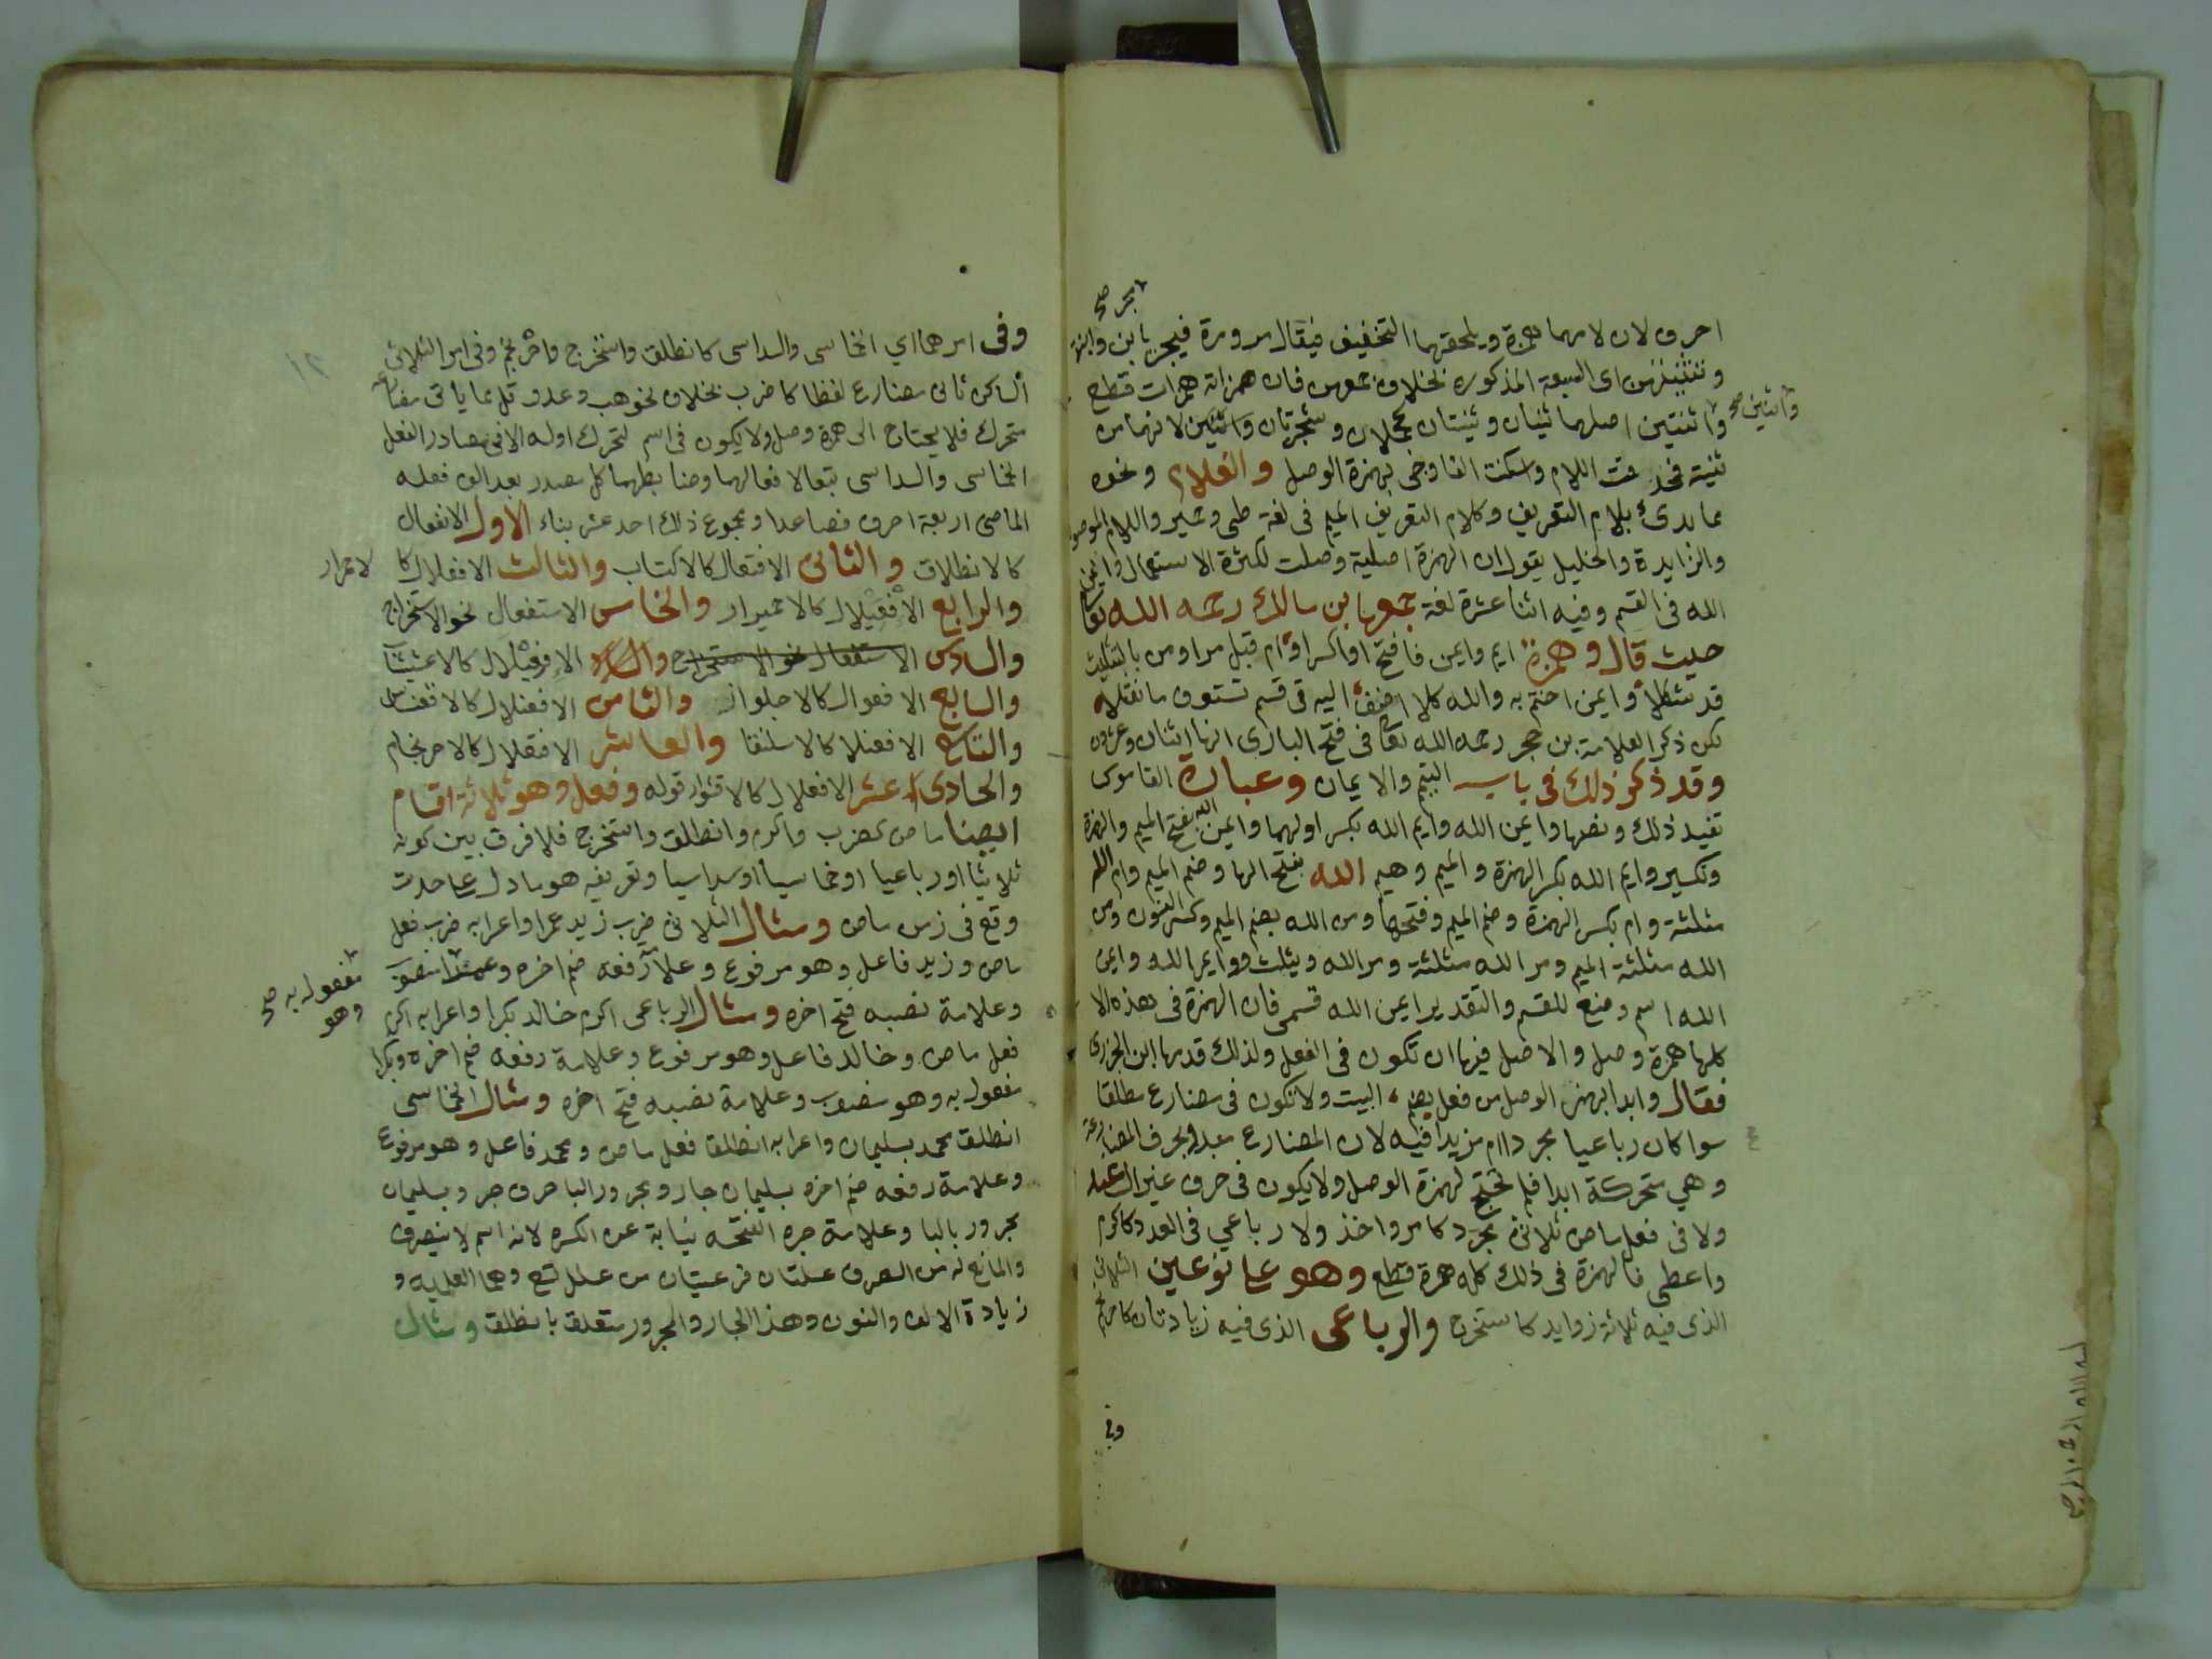 احرف لان لامهما همزة ويلحقهما التخفيف فيقال مرو مرة فيجر بابن وابنة
وتثنيتهن اى السبعة المذكوره بخلاف جمعهن فان همزاته همزات قطع
واثنتين اصلهما ثنيان وثنيتان كجملان وشجرتان واثنين لانهما من
وابنتين صح
ثنية فحذفت اللام واسكنت الفا وجى بهمزة الوصل والغلام ونحوه
مما بدئ بلام التعريف وكلام التعريف الميم فى لغة طى وحمير واللام الموصو
والزايدة والخليل يقول ان الهمزة اصلية وصلت لكثرة الاستعمال وايمن
الله فى القسم وفيه اثنا عشرة لغة جمعها بن مالك رحمه الله تعا
حيث قال وهمزة ايم وايمن فافتح او اكسر او ام قبل مر او من بالتثليث
قد شكلا وايمن اختم به والله كلا اضف اليه فى قسم تستوف ما نقلا
لكن ذكر العلامة بن حجر رحمه الله تعا فى فتح البارى انها اثنان وعشرون
وقد ذكر ذلك فى باب التيمم والايمان وعبارة القاموس
تفيد ذلك ونصها وايمن الله وايم الله بكسر اولهما وايمن الله بفتح الميم والهمزة
وتكسر وايم الله بكسر الهمزة والميم وهيم الله بفتح الها وضم الميم وام الله
مثلثة وام بكسر الهمزة وضم الميم وفتحها ومن الله بضم الميم وكسر النون ومن
الله مثلثة الميم ومر الله مثلثة ومرالله ويثلث ووايم الله وايمن
الله اسم وضع للقسم والتقدير ايمن الله قسمى فان الهمزة فى هذه الا
كلها همزة وصل والاصل فيها ان تكون فى الفعل ولذلك قدمها ابن الجزرى
فقال وابدا بهمز الوصل من فعل بضم البيت ولا تكون فى مضارع مطلقا
سوا كان رباعيا مجردا ام مزيدا فيه لان المضارع مبدو بحرف المضارعة
وهي متحركة ابدا فلم تحتج لهمزة الوصل ولا يكون فى حرف غير ال
ولا فى فعل ماض ثلاثى مجرد كامر واخذ ولا رباعي فى العدد كاكرم
واعطى فالهمزة فى ذلك كله همزة قطع وهو على نوعين الثلاثى
الذى فيه ثلاثة زوايد كاستخرج والرباعى الذى فيه زيادتان كاحرنجم
وفى
وفى امرهما اي الخماسى والسداسى كانطلق واستخرج واحرنجم وفى امر الثلاثى
الساكن ثانى مضارع لفظا كاضرب بخلاف نحو هب وعد وقل مما ياتى مضارعه
متحرك فلا يحتاج الى همزة وصل ولا يكون فى اسم لتحرك اوله الا فى مصادر الفعل
الخماسى والسداسى تبعا لافعالهما وضابطهما كل مصدر بعد الف فعله
الماضى اربعة احرف فصاعدا ومجموع ذلك احد عشر بناء الاول الانفعال
كالانطلاق والثانى الافتعال كالاكتساب والثالث الافعلال كا لاحمرار
والرابع الافعيلال كالاحميرار والخامس الاستفعال نحو الاستخراج
والسادس الاستفعال نحو الاستخراج والساد الافعيلال كالاعشيشا
والسابع الافعوال كالاجلواز والثامن الافعنلال كالاقعنساس
والتاسع الافعنلا كالاسلنقا والعاشر الافعنلال كالاحرنجام
والحادى عشر الافعلال كالاقشرار قوله وفعل وهو ثلاثة اقسام
ايضا ماض كضرب واكرم وانطلق واستخرج فلا فرق بين كونه
ثلاثيا او رباعيا او خماسيا او سداسيا وتعريفه هو ما دل على حدث
وقع فى زمن ماض ومثال الثلاثى ضرب زيد عمرا واعرابه ضرب فعل
ماض وزيد فاعل وهو مرفوع وعلامة رفعه ضم اخره وعمرا منصوب
مفعول به صح
وهو
وعلامة نصبه فتح اخره ومثال الرباعى اكرم خالد بكرا واعرابه اكرم
فعل ماض وخالد فاعل وهو مرفوع وعلامة رفعه ضم اخره وبكرا
مفعول به وهو منصوب وعلامة نصبه فتح اخره ومثال الخماسى
انطلق محمد بسليمان واعرابه انطلق فعل ماض ومحمد فاعل وهو مرفوع
وعلامة رفعه ضم اخره بسليمان جار ومجرور البا حرف جر وبسليمان
مجرور بالبا وعلامة جره الفتحه نيابة عن الكسره لانه اسم لا ينصرف
والمانع له من الصرف علتان فرعيتان من علل تسع وهما العلميه و
زيادة الالف والنون وهذا الجار والمجرور متعلق بانطلق ومثال